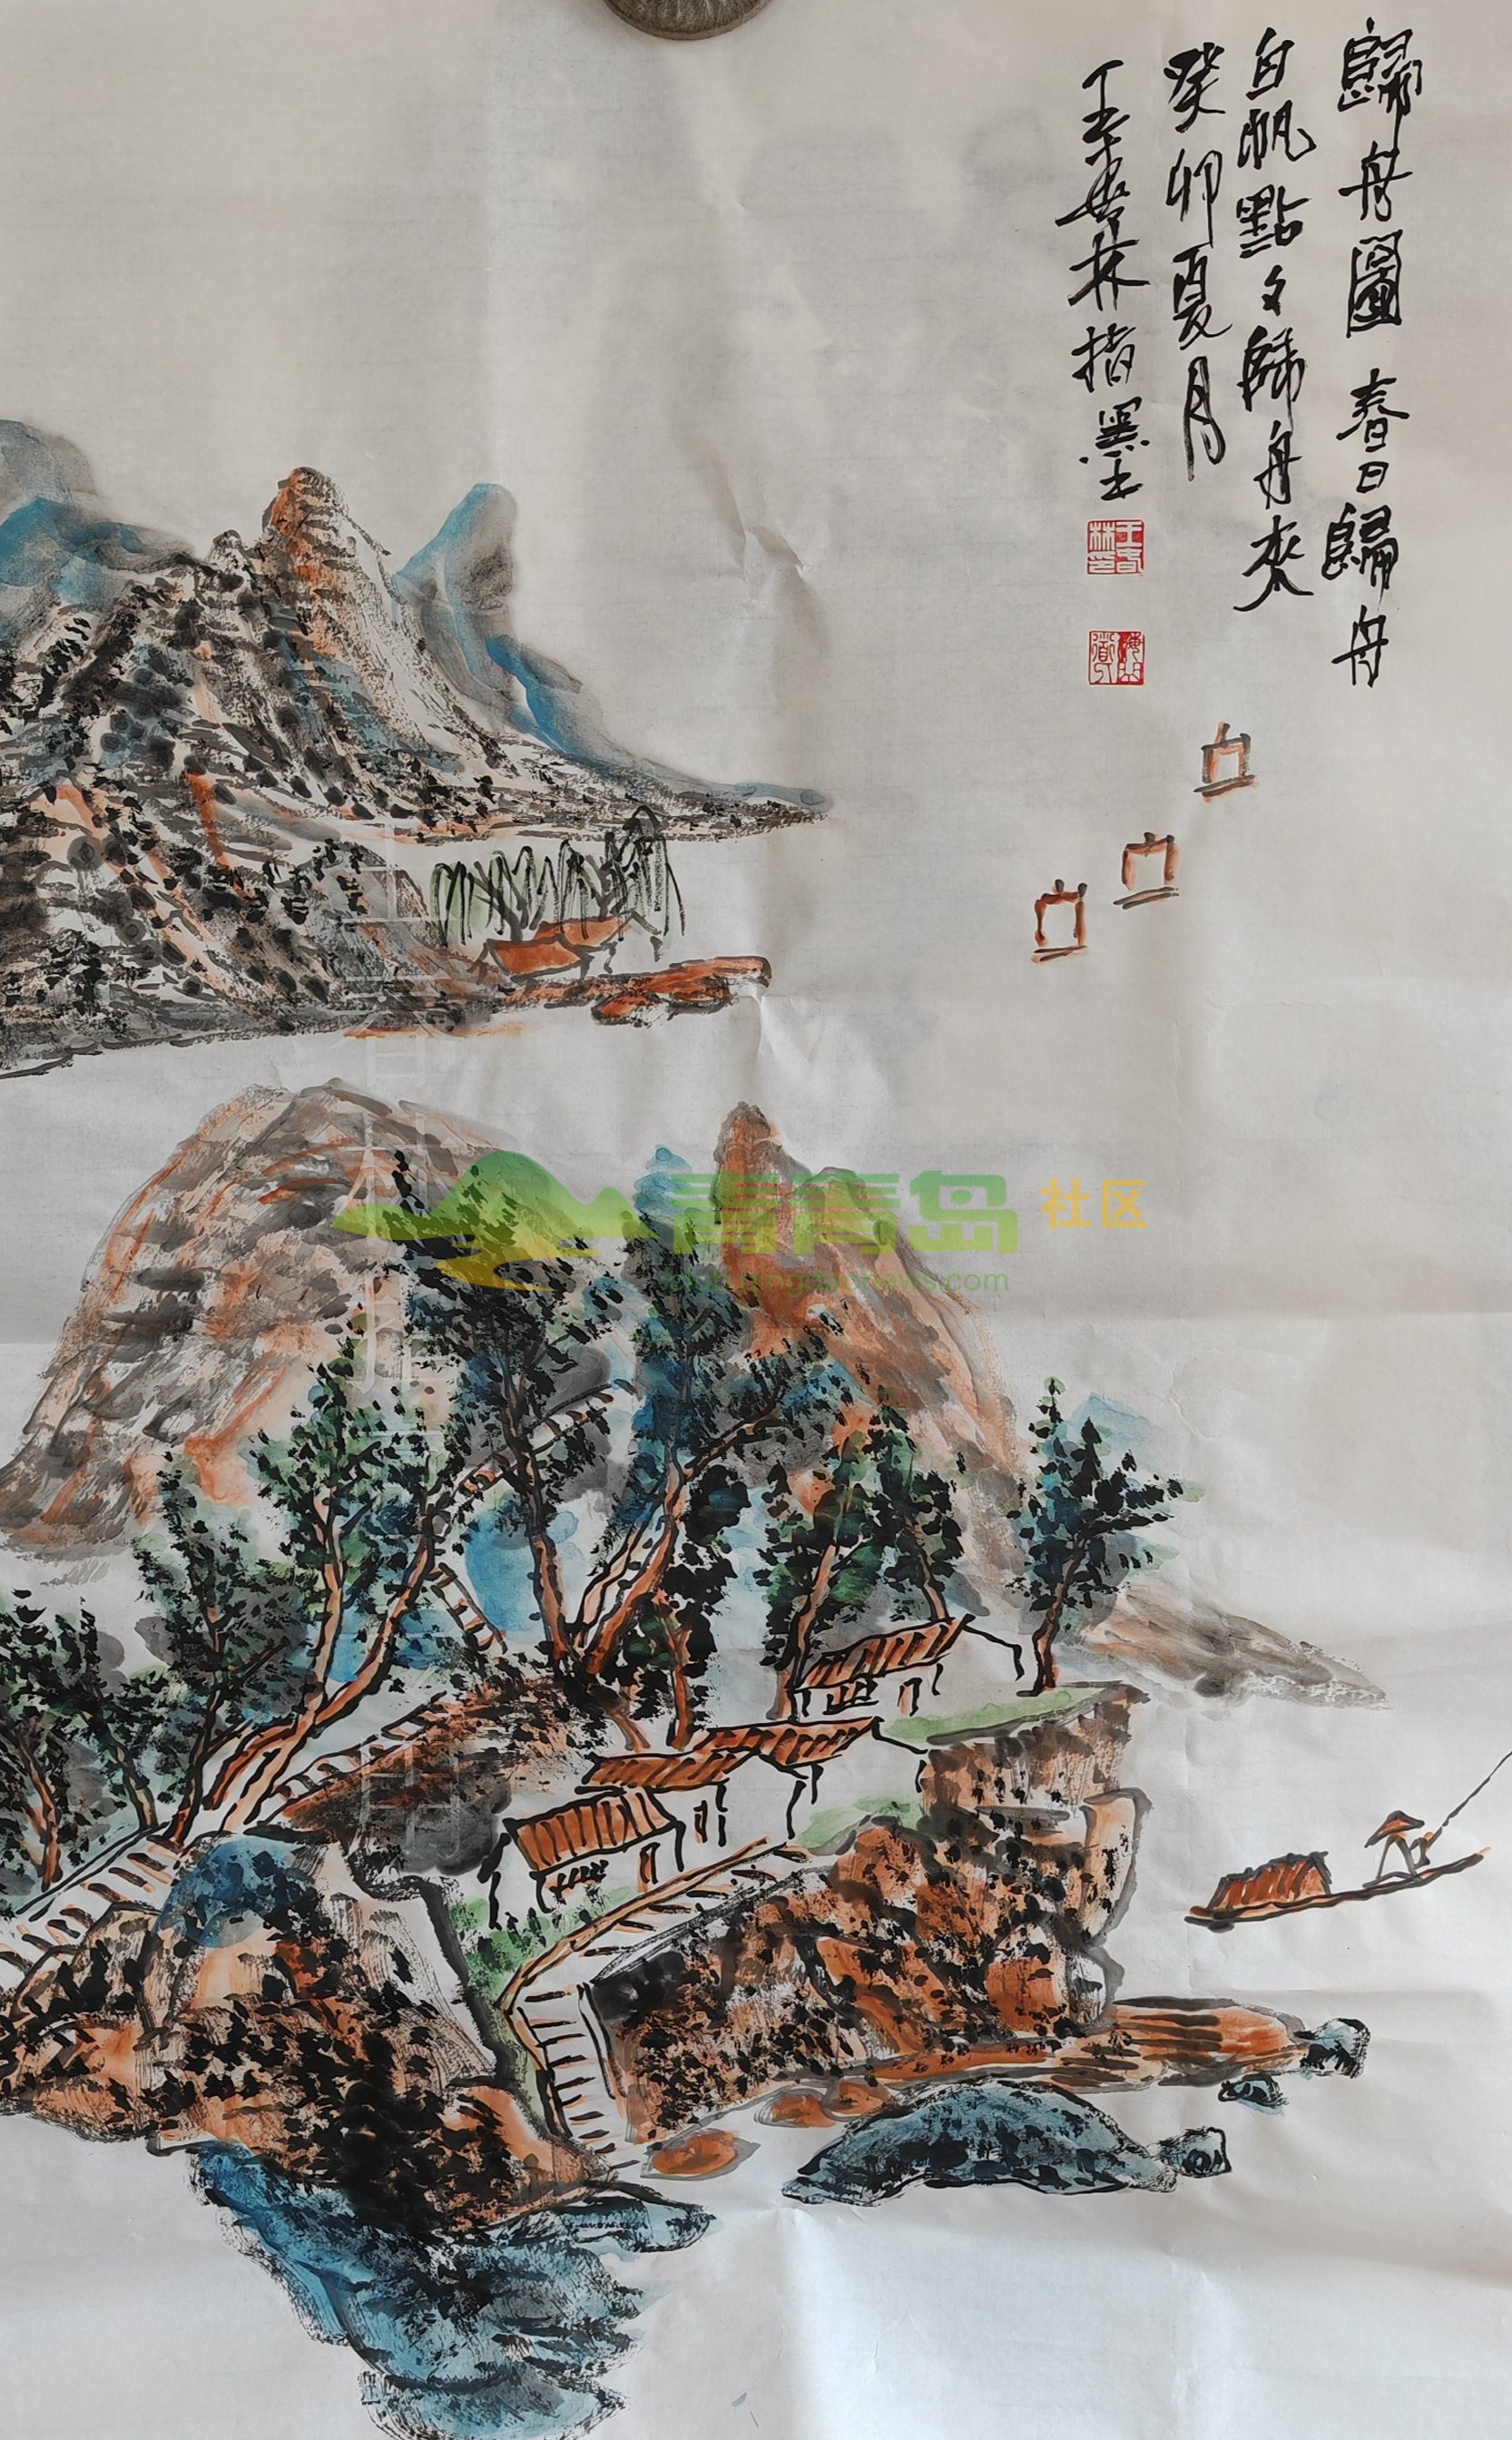 歸舟圖 春日歸舟
白帆點々歸舟來
癸卯夏月
王春林指墨
王春林印
青青岛社区
club.qingdaonews.com